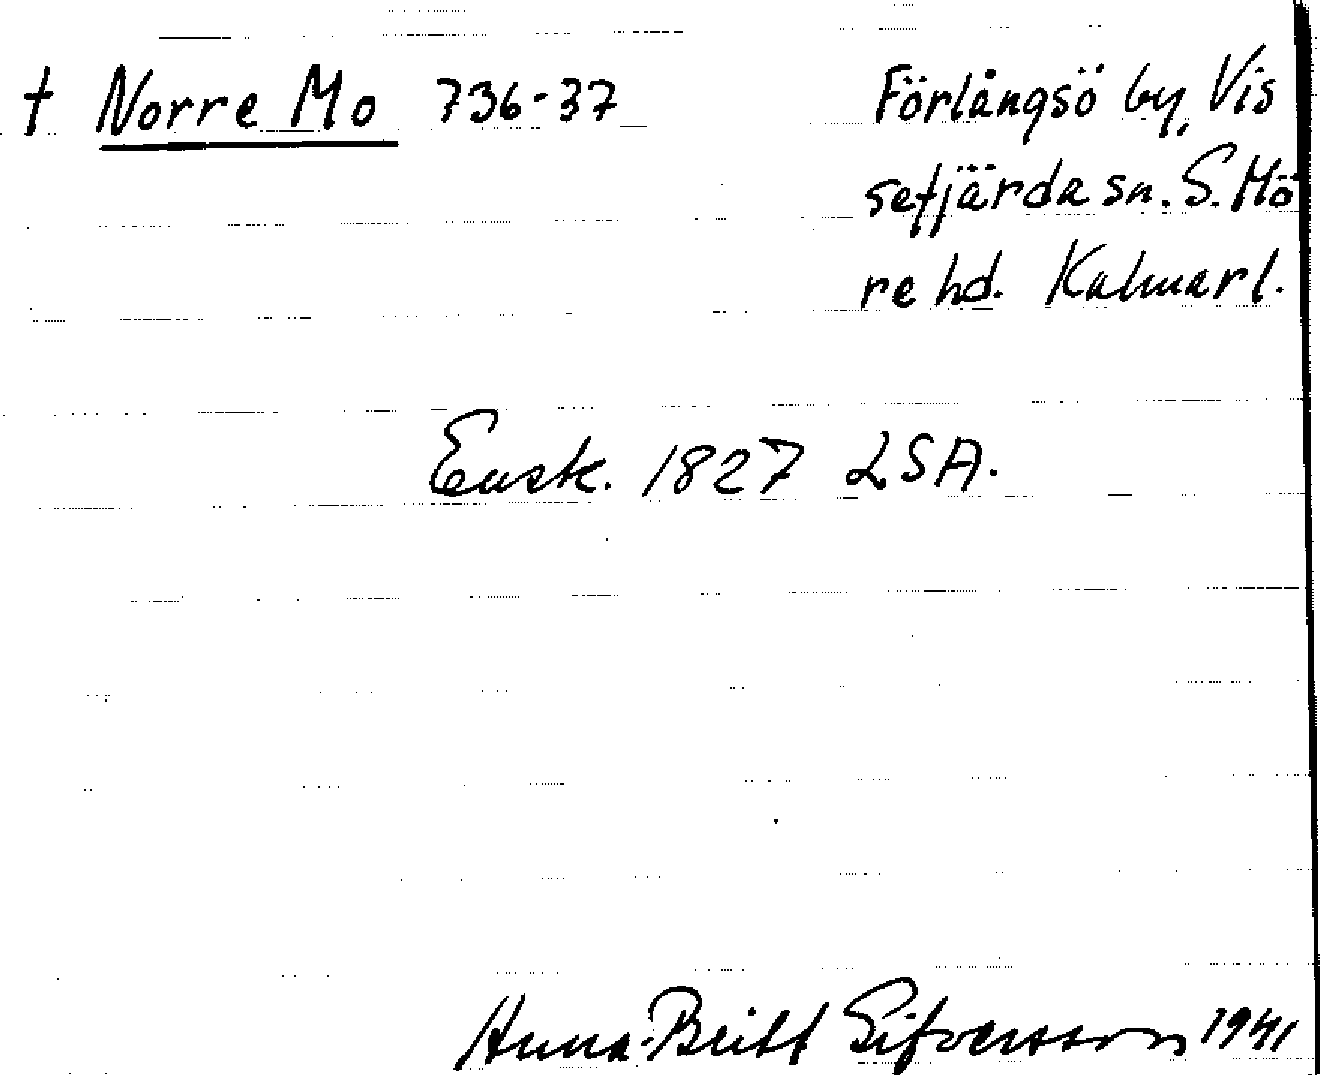 † Norre Mo 736-37 Förlångsö by, Vis
sefjärda sn. S. Mö
re hd. Kalmarl.
Ensk. 1827 LSA.
Anna-Britt Sifversson 1941